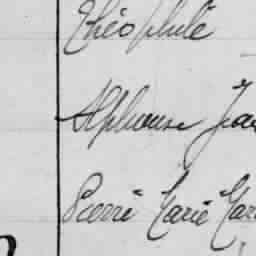 Théophile
Alphonse Jean
Pierre Marie